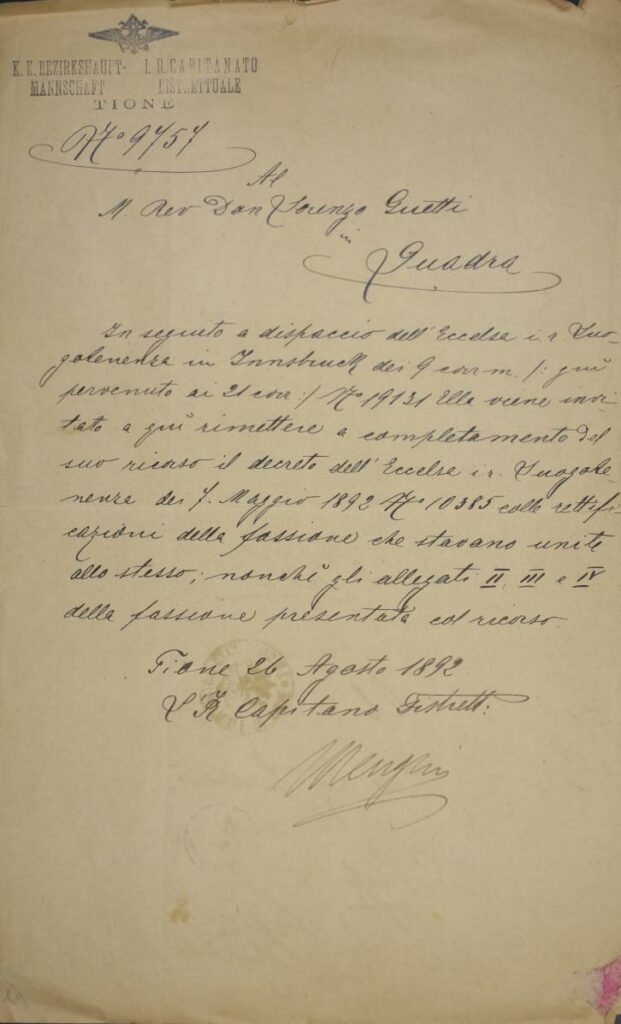 K. K. BEZIRKSHAUPT- I. R. CAPITANATO
MANNSCHAFT DISTRETTUALE
TIONE
No 9757
Al
M. Rev. Don Lorenzo Guetti
in
Quadra
In seguito a dispaccio dell'Eccelsa i. r. Luo-
gotenenza in Innsbruck dei 9 corr m. /: quì
pervenuto ai 21 corr :/ No 19131 Ella viene invi-
tato a quì rimettere a completamento del
suo ricorso il decreto dell'Eccelsa i. r. Luogote-
nenza dei 7. Maggio 1892 No 10385 colle rettifi
cazioni della fassione che stavano unite
allo stesso; nonchè gli allegati II, III e IV
della fassione presentata col ricorso
Tione 26 Agosto 1892
L'I. R. Capitano Distrett: